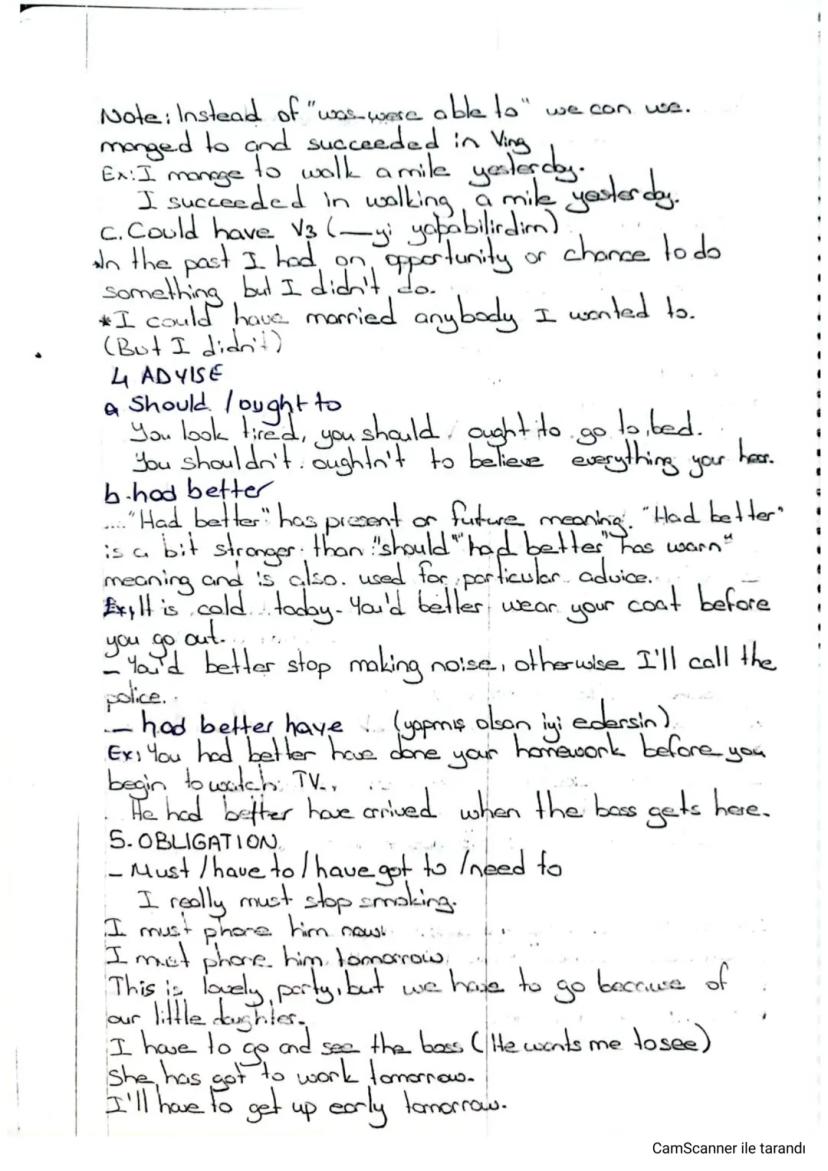 Note: Instead of "was-were able to" we can use.
manged to and succeeded in Ving
Ex: I manage to walk a mile yesterday.
I succeeded in walking a mile yesterday.
c. Could have V3 (—yi yapabilirdim)
*In the past I had an opportunity or chance to do
something but I didn't do.
*I could have married anybody I wanted to.
(But I didn't)
4 ADVISE
a Should / ought to
You look tired, you should. ought to go to bed.
You shouldn't. oughtn't to believe everything your hear.
b. had better
...."Had better" has present or future meaning. "Had better"
is a bit stronger than "should" "had better" has warn"
meaning and is also used for particular advice.
Ex, It is cold today. You'd better wear your coat before
you go out.
- You'd better stop making noise, otherwise I'll call the
police.
- had better have (yapmış olsan iyi edersin)
Ex: You had better have done your homework before you
begin to watch TV.
He had better have arrived when the boss gets here.
5. OBLIGATION
- Must / have to / have got to / need to
I really must stop smoking.
I must phone him now.
I must phone him tomorrow.
This is lovely party, but we have to go because of
our little daughter.
I have to go and see the boss (He wants me to see)
She has got to work tomorrow.
I'll have to get up early tomorrow.
CamScanner ile tarandı